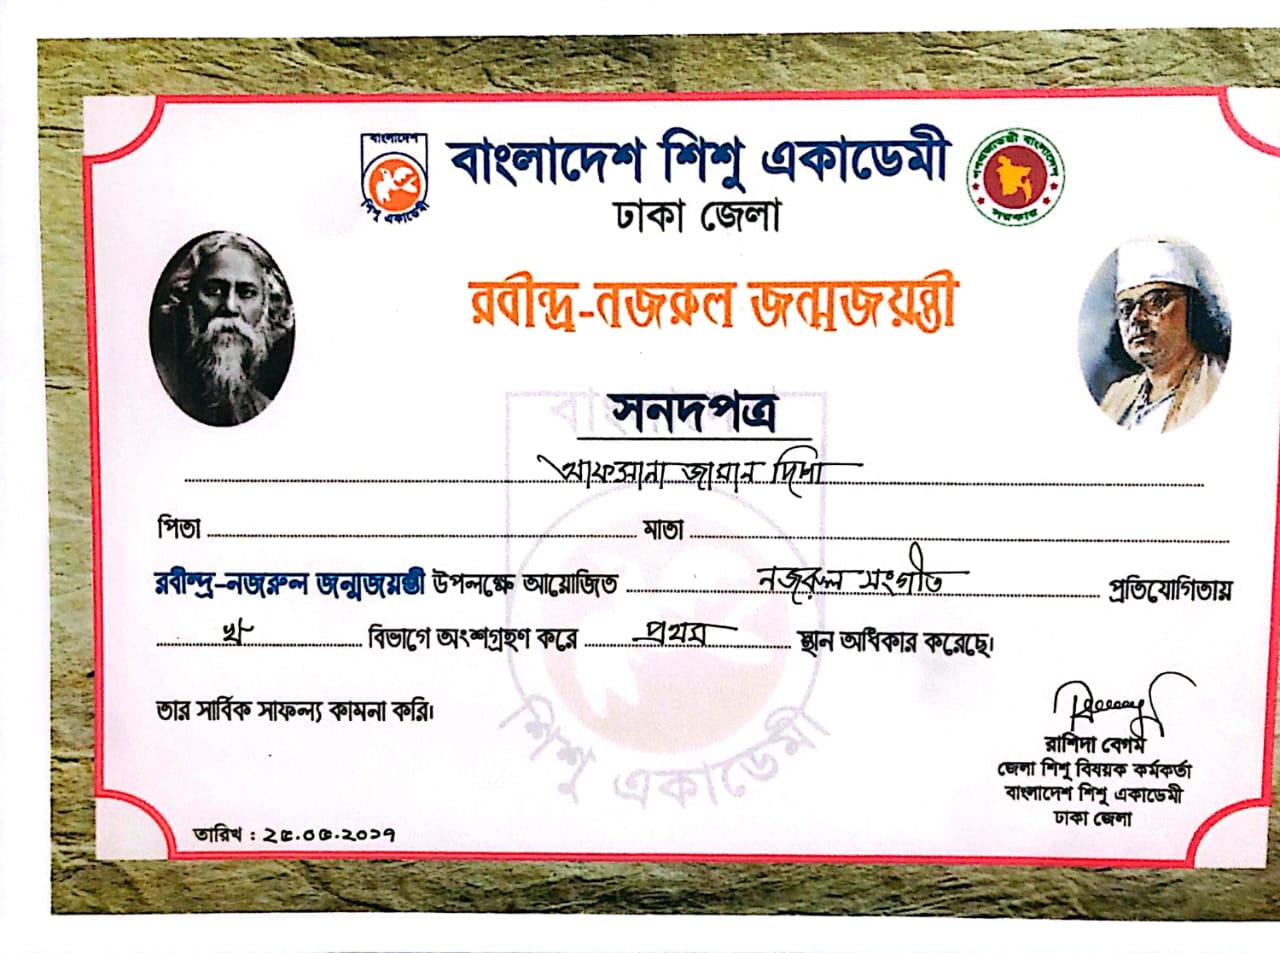 বাংলাদেশ শিশু একাডেমী
ঢাকা জেলা
বাংলাদেশ
শিশু একাডেমী
গণপ্রজাতন্ত্রী বাংলাদেশ
সরকার
রবীন্দ্র-নজরুল জন্মজয়ন্তী
সনদপত্র
আফসানা জামান দিপা
পিতা মাতা
রবীন্দ্র-নজরুল জন্মজয়ন্তী উপলক্ষে আয়োজিত নজরুল সংগীত প্রতিযোগিতায়
খ বিভাগে অংশগ্রহণ করে প্রথম স্থান অধিকার করেছে।
তার সার্বিক সাফল্য কামনা করি।
শিশু একাডেমী
রাশিদা বেগম
জেলা শিশু বিষয়ক কর্মকর্তা
বাংলাদেশ শিশু একাডেমী
ঢাকা জেলা
তারিখ : ২৫.০৫.২০১৭